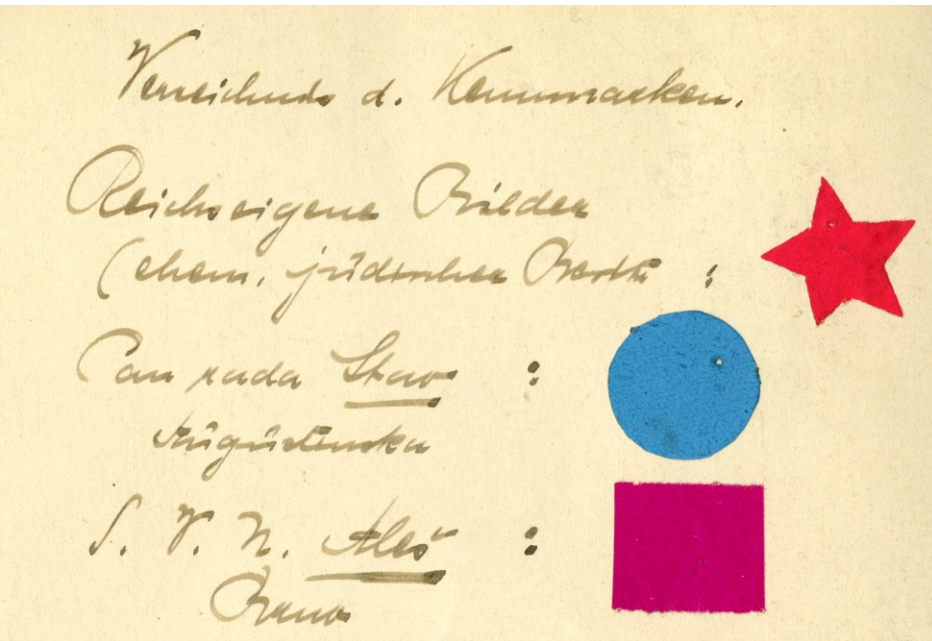 Verzeichnis d. Kennmarken.
Reichseigene Bilder
(ehem. jüdischer Besitz :
Pan rada Stav :
Augustinska
S. V. U. Aleš :
Brno